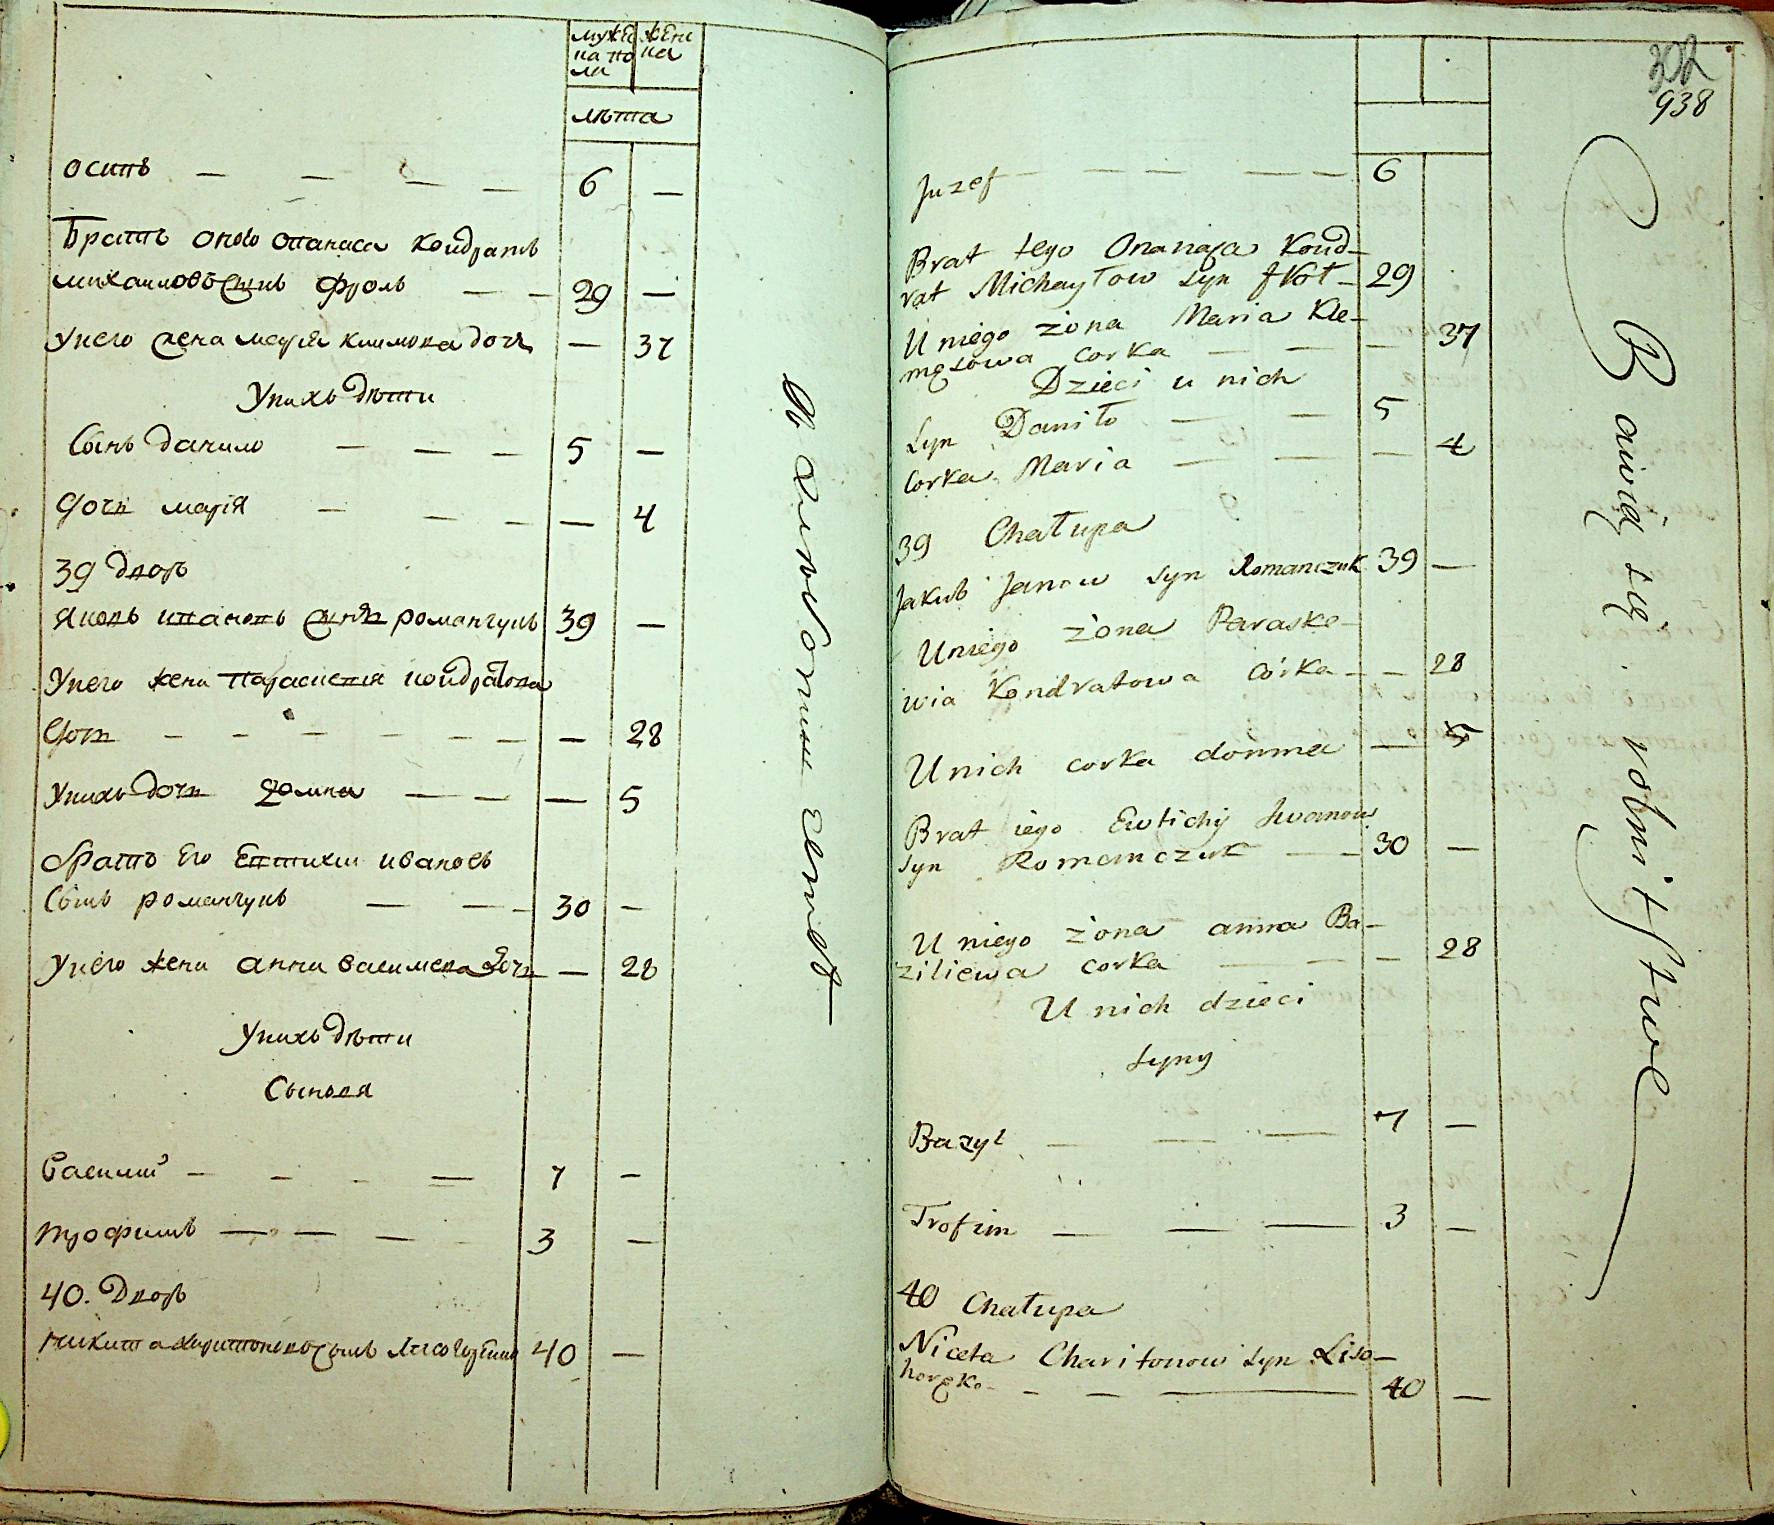 мужеска полу
женска
лѣта
осипъ — — — — 6 —
Братъ оного опанаса кондратъ
михаиловъ сынъ фролъ — — 29 —
Унего жена марія климова дочь — 37
Унихъ дѣти
Сынъ данило — — — 5 —
дочь марія — — — — 4
39 дворъ
яковъ ивановъ сынъ романчукъ 39 —
Унего жена параскевія кондратова
дочь — — — — — — — 28
Унихъ дочь домна — — — 5
братъ его Евтихій ивановъ
сынъ романчукъ — — — 30 —
Унего жена анна васильева дочь — 28
Унихъ дѣти
Сыновя
Василій — — — — 7 —
трофимъ — — — — 3 —
40. Дворъ
никита харитоновъ сынъ 40 —
302
938
Juzef — — — — — 6
Brat tego Onanasa Kond-
rat Michayłow syn froł — 29
U niego żona Maria Kle-
mętowa corka — — — 37
Dzieci u nich
syn Daniło — — 5
corka Maria — — — 4
39 Chałupa
Jakub Janow syn Romanczuk 39 —
Uniego żona Paraske-
wia Kondratowa córka — — 28
Unich corka domna — 5
Brat iego Ewtichy Iwanow
syn Romanczuk — — 30 —
U niego żona anna Ba-
ziliewa corka — — — 28
U nich dzieci
syny
Bazyl — — — 7 —
Trofim — — — 3 —
40 Chałupa
Niceta Charitonow syn Liso-
horęko — — — 40 —
Bawią się rolnictwe